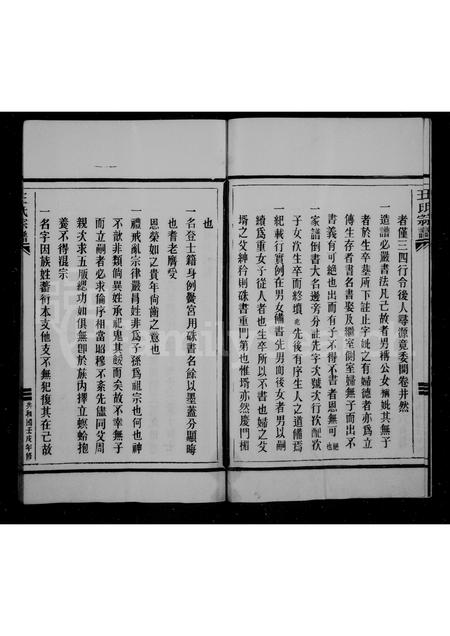 王氏宗譜
者僅三四行令後人尋源竟委開卷井然
一造譜必嚴書法凡已故者男稱公女稱妣其無子
者於生卒葬所下註止字誌之有婦德者亦爲立
傳生存者書名書娶及繼室側室婦無子而出不
書義有可絶也出而有子不得不書者恩無可絶也
家譜倒書大名邊旁分註先字次號次行次配次
子女次生卒而終墳先後有序生人之道備焉
一紀載行實例在男女備書先男而後女者男以嗣
續爲重女子從人者也生卒所以不書也婦之父
壻之父紳衿則硃書重門第也惟壻亦然慶門楣
也
一名登士籍身列黌宮用硃書名餘以墨蓋分顯晦
恩榮如之貴年尚齒之意也
也耆老膺受
一禮戒亂宗律嚴冐姓非爲子孫爲祖宗也何也神
不歆非類倘異姓承祀鬼其餒而矣故不幸無子
而立嗣者必求倫序相當昭穆不紊先儘同父周
親次求五服緦功如俱無卽於族內擇立螟蛉抱
養不得混宗
一名字因族姓蕃衍本支他支不無犯復其在已故
王氏宗譜
共和國壬戌年修